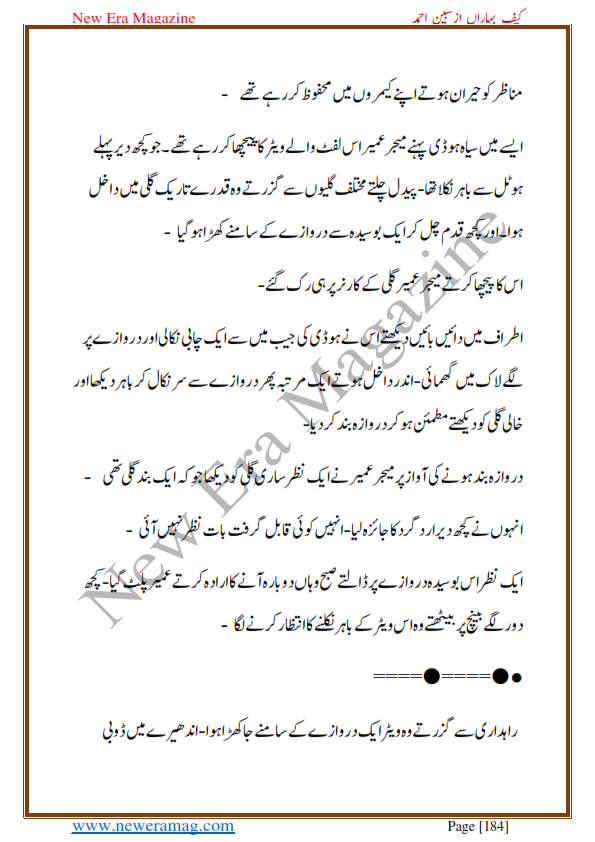 New Era Magazine کیف بہاراں از سبین احمد
مناظر کو حیران ہوتے اپنے کیمروں میں محفوظ کر رہے تھے -
ایسے میں سیاہ ہوڈی پہنے میجر عمیر اس لفٹ والے ویٹر کا پیچھا کر رہے تھے۔ جو کچھ دیر پہلے
ہوٹل سے باہر نکلا تھا- پیدل چلتے مختلف گلیوں سے گزرتے وہ قدرے تاریک گلی میں داخل
ہوا۔ اور کچھ قدم چل کر ایک بوسیدہ سے دروازے کے سامنے کھڑا ہو گیا -
اس کا پیچھا کرتے میجر عمیر گلی کے کارنر پر ہی رک گئے-
اطراف میں دائیں بائیں دیکھتے اس نے ہوڈی کی جیب میں سے ایک چابی نکالی اور دروازے پر
لگے لاک میں گھمائی- اندر داخل ہوتے ایک مرتبہ پھر دروازے سے سر نکال کر باہر دیکھا اور
خالی گلی کو دیکھتے مطمئن ہو کر دروازہ بند کر دیا-
دروازہ بند ہونے کی آواز پر میجر عمیر نے ایک نظر ساری گلی کو دیکھا جو کہ ایک بند گلی تھی -
انہوں نے کچھ دیر ارد گرد کا جائزہ لیا- انہیں کوئی قابل گرفت بات نظر نہیں آئی -
ایک نظر اس بوسیدہ دروازے پر ڈالتے صبح وہاں دوبارہ آنے کا ارادہ کرتے عمیر پلٹ گیا- کچھ
دور لگے بینچ پر بیٹھتے وہ اس ویٹر کے باہر نکلنے کا انتظار کرنے لگا -
●●====●====
راہداری سے گزرتے وہ ویٹر ایک دروازے کے سامنے جا کھڑا ہوا- اندھیرے میں ڈوبی
www.neweramag.com Page [184]
New Era Magazine